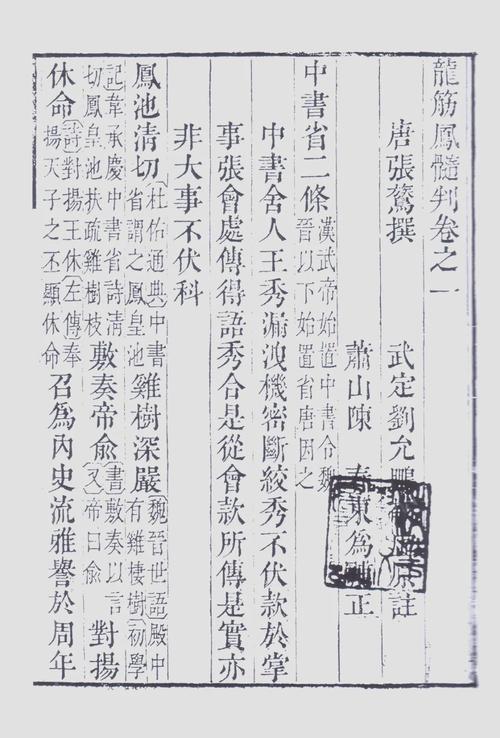 龍筋鳳髓判卷之一
唐張鷟撰
武定劉允鵬原註
蕭山陳春東為正
中書省二條漢武帝始置中書令魏
晉以下始置省唐因之
中書舍人王秀漏洩機密斷絞秀不伏款於掌
事張會處傳得語秀合是從會款所傳是實亦
非大事不伏科
鳳池清切杜佑通典中書
省謂之鳳皇池
雞樹深嚴魏晉世語殿中
有雞棲樹初學
記韋承慶中書省詩清
切鳳皇池扶疏雞樹枝
敷奏帝俞書敷奏以言
又帝曰俞
對揚
休命詩對揚王休左傳奉
揚天子之丕顯休命
召為內史流雅譽於周年